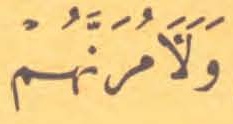 وَلَآمُرَنَّهُمْ